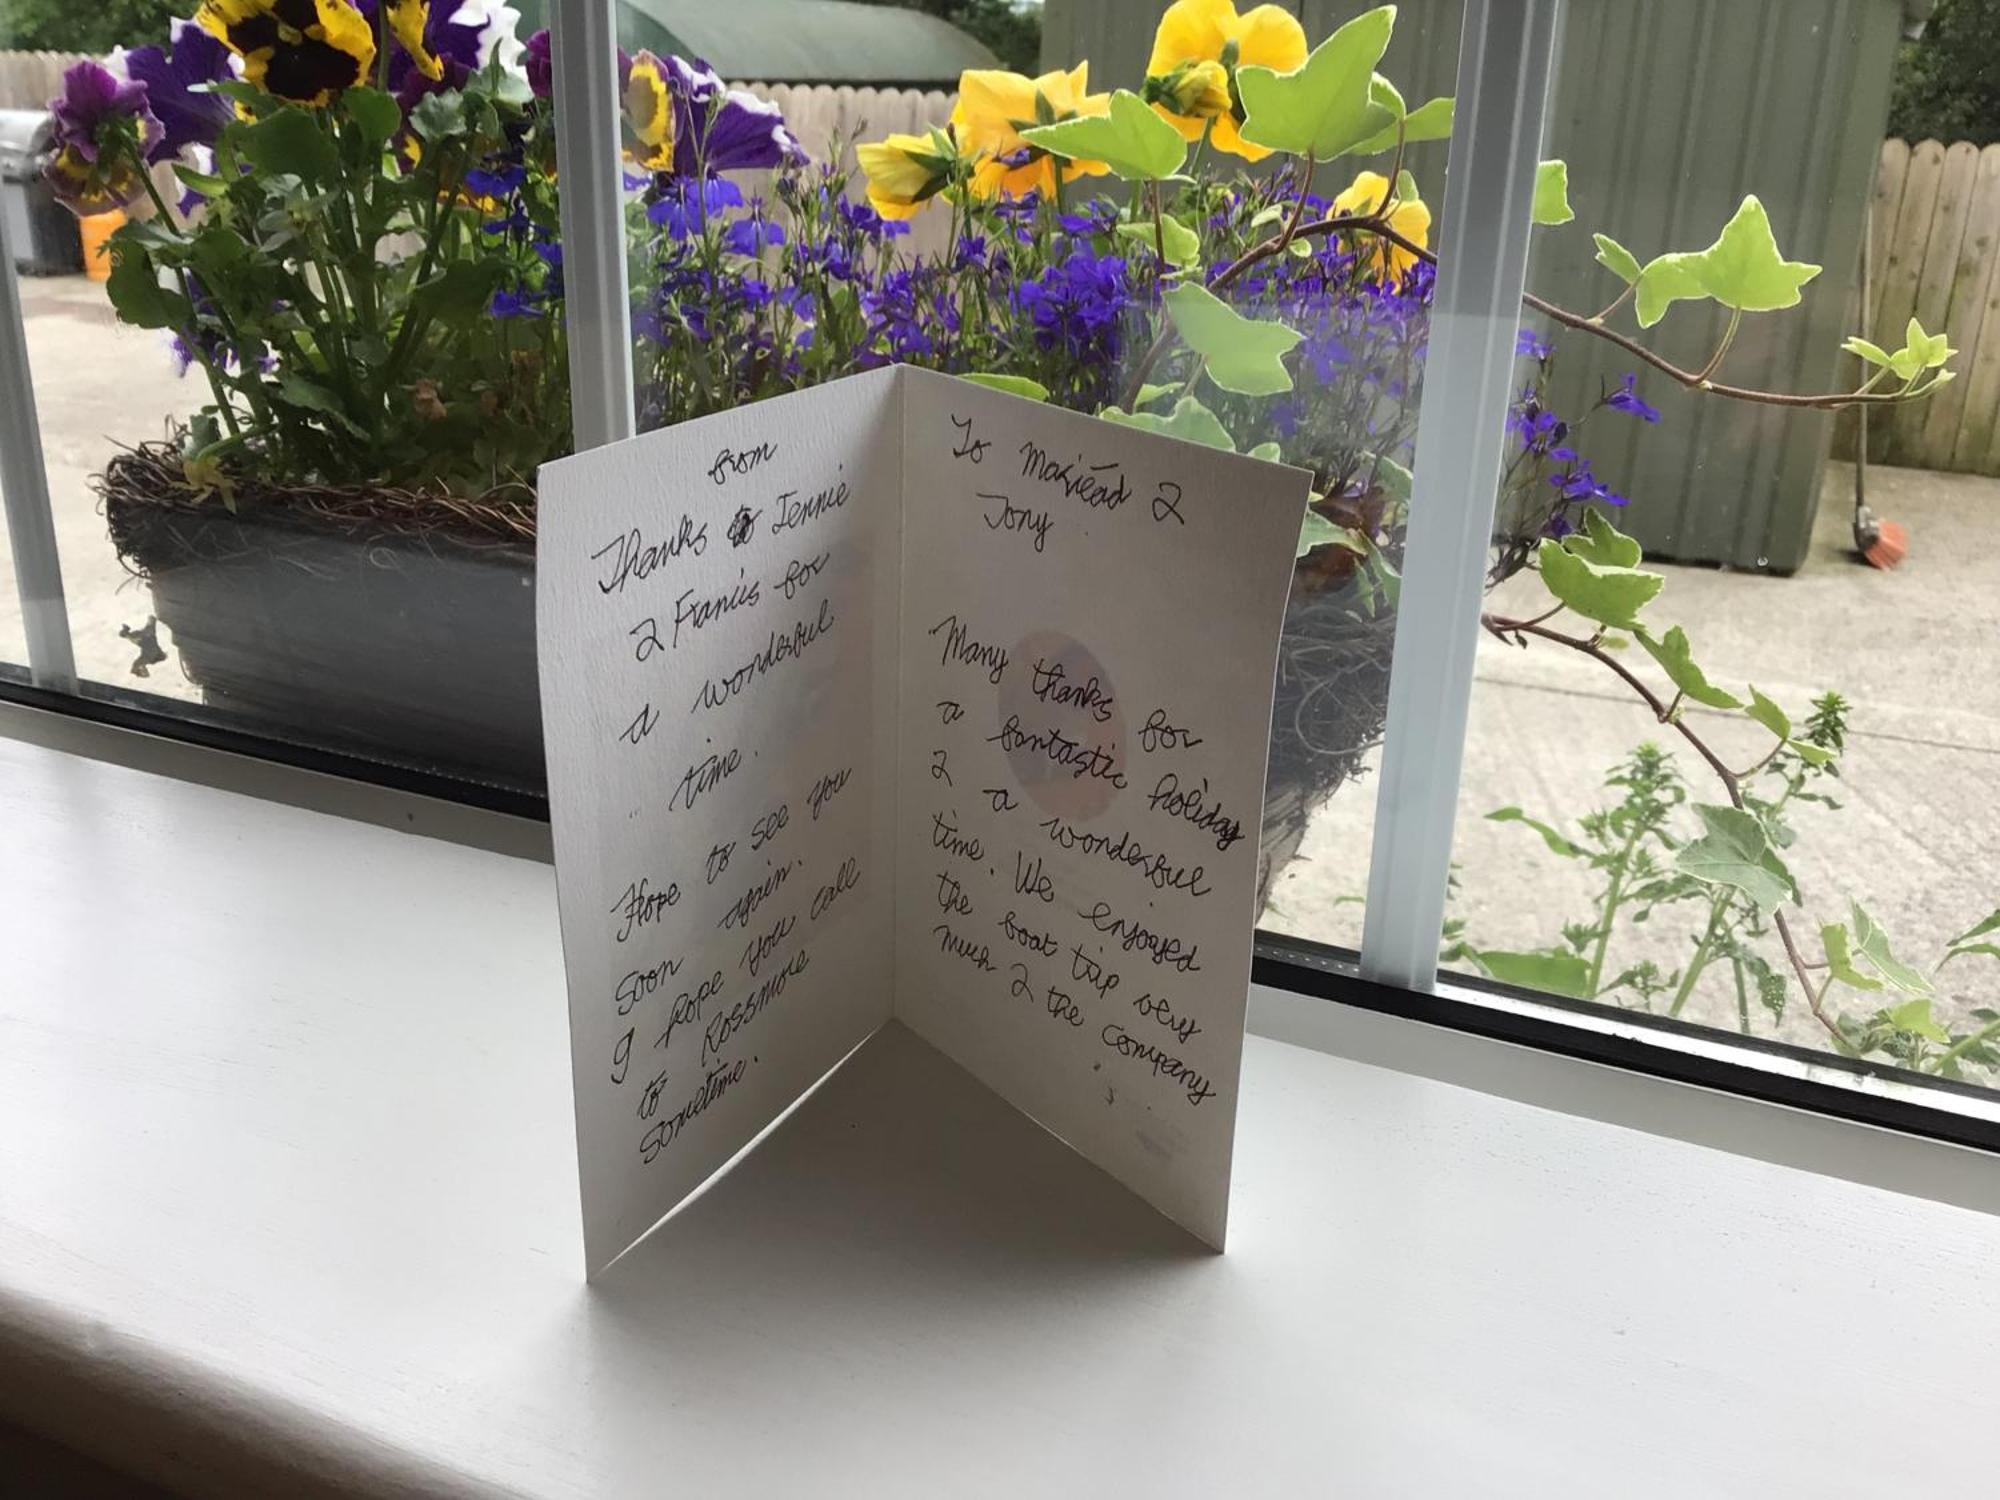 from
Thanks to Jennie
& Francis for
a wonderful
time.
Hope to see you
soon again.
I hope you call
to Rossmore
sometime.
To Mairéad &
Tony
Many thanks for
a fantastic holiday
& a wonderful
time. We enjoyed
the boat trip very
much & the company